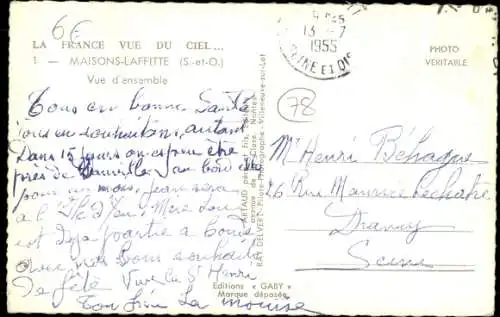 6€
LA FRANCE VUE DU CIEL...
1 - MAISONS-LAFFITTE (S.-et-O.)
Vue d'ensemble
13 - 7
1955
SEINE ET OISE
PHOTO
VÉRITABLE
78
Tous en bonne Santé
vous en souhaitons autant
Dans 15 jours on espère être
près de Deauville au bord
pour un mois, Jean sera
à l'Ile d'Yeu, Mère
est déjà partie à
bons souhaits
de fête Vive la St Henri
Ton frère La
Mr Henri Béhague
26 Rue Maurice Lachatre
Drancy
Seine
RAY DELVERT, Pilote-Photographe - Villeneuve-sur-Lot
Editions « GABY »
Marque déposée